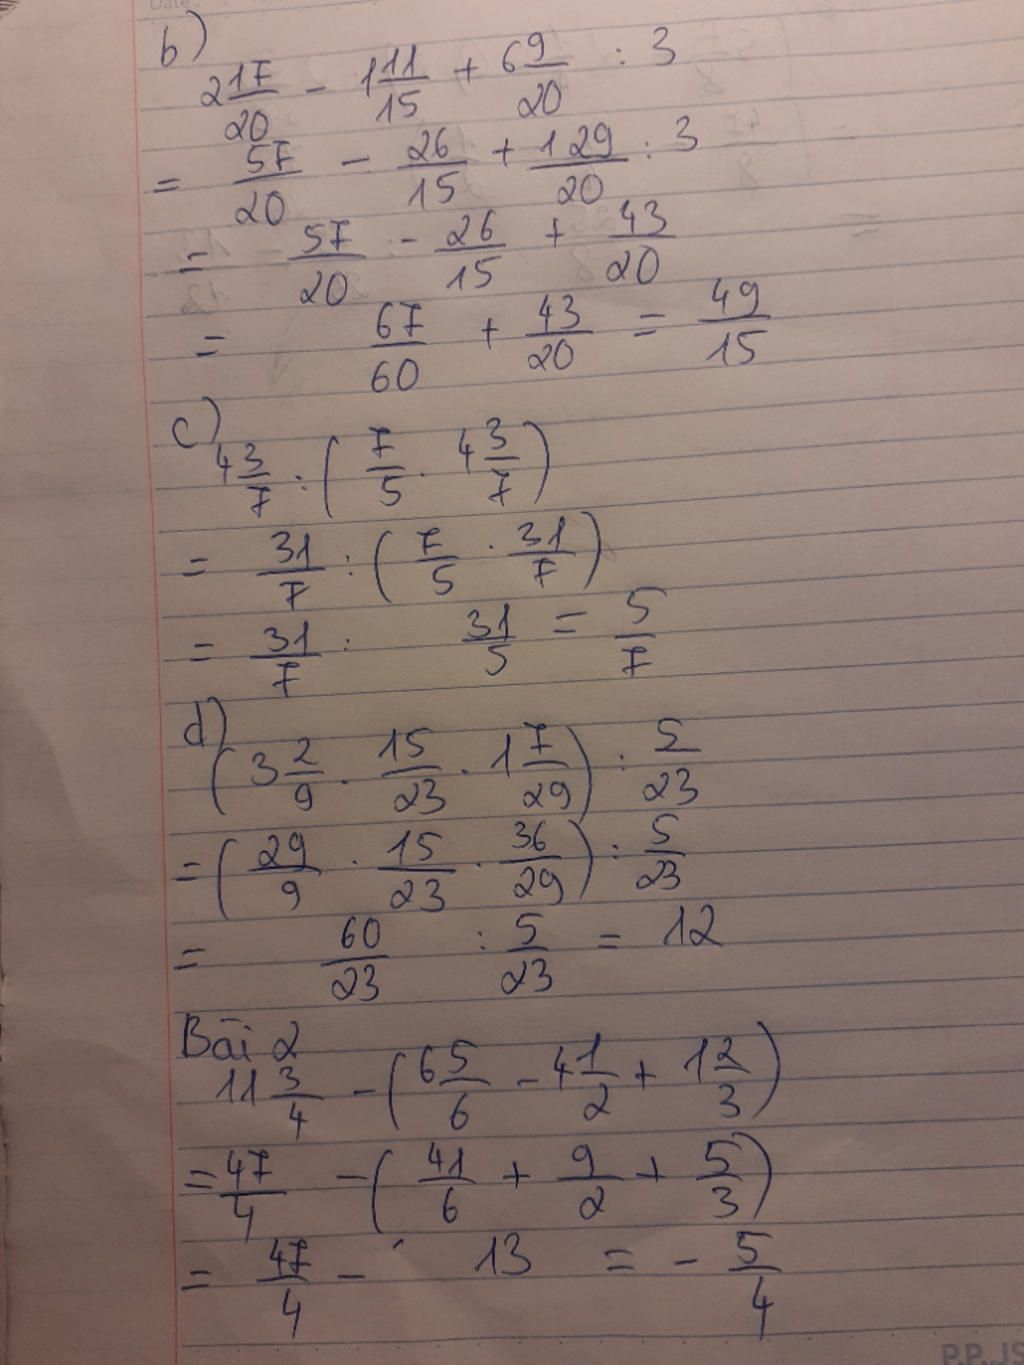 Date
b)
2 17/20 - 1 11/15 + 6 9/20 : 3
= 57/20 - 26/15 + 129/20 : 3
= 57/20 - 26/15 + 43/20
= 67/60 + 43/20 = 49/15
c)
4 3/7 : (7/5 . 4 3/7)
= 31/7 : (7/5 . 31/7)
= 31/7 : 31/5 = 5/7
d)
(3 2/9 . 15/23 . 1 7/29) : 5/23
= (29/9 . 15/23 . 36/29) : 5/23
= 60/23 : 5/23 = 12
Bài 2
11 3/4 - (6 5/6 - 4 1/2 + 1 2/3)
= 47/4 - (41/6 + 9/2 + 5/3)
= 47/4 - 13 = - 5/4